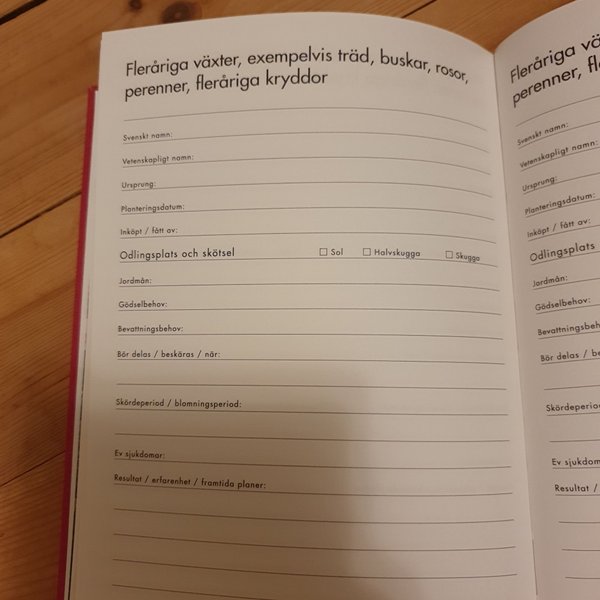 Fleråriga växter, exempelvis träd, buskar, rosor,
perenner, fleråriga kryddor
Svenskt namn:
Vetenskapligt namn:
Ursprung:
Planteringsdatum:
Inköpt / fått av:
Odlingsplats och skötsel ☐ Sol ☐ Halvskugga ☐ Skugga
Jordmån:
Gödselbehov:
Bevattningsbehov:
Bör delas / beskäras / när:
Skördeperiod / blomningsperiod:
Ev sjukdomar:
Resultat / erfarenhet / framtida planer:
Fleråriga
perenner,
Svenskt namn:
Vetenskapligt namn:
Ursprung:
Planteringsdatum:
Inköpt / fått av:
Odlingsplats
Jordmån:
Gödselbehov:
Bör delas / be
Skördeperiod
Ev sjukdoma
Resultat /